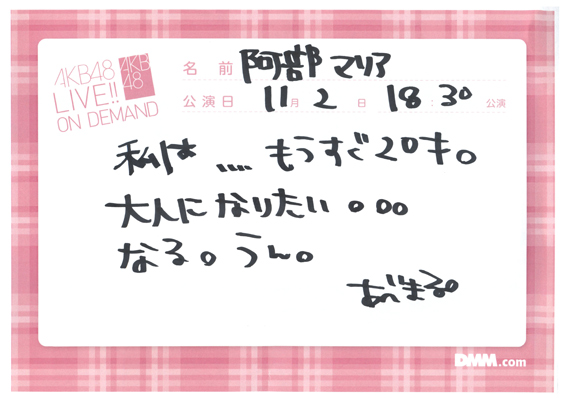 AKB48
LIVE!!
ON DEMAND
AKB
48
名前 阿部マリア
公演日 11月2日 18:30公演
私は .... もうすぐ20才。
大人になりたい。。。
なる。うん。
あべまる。
DMM.com